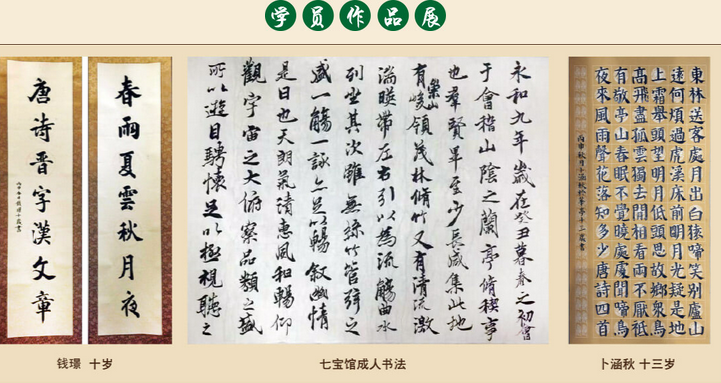 学员作品展
春雨夏雲秋月夜
唐詩晋字漢文章
永和九年歲在癸丑暮春之初會
于會稽山陰之蘭亭脩禊事
也羣賢畢至少長咸集此地
有崇山峻領茂林脩竹又有清流激
湍暎帶左右引以為流觴曲水
列坐其次雖無絲竹管弦之
盛一觴一詠亦足以暢叙幽情
是日也天朗氣清惠風和暢仰
觀宇宙之大俯察品類之盛
所以遊目騁懷足以極視聽之
東林送客處月出白猿啼笑別廬山
遠何煩過虎溪床前明月光疑是地
上霜舉頭望明月低頭思故鄉眾鳥
高飛盡孤雲獨去閒相看兩不厭祗
有敬亭山春眠不覺曉處處聞啼鳥
夜來風雨聲花落知多少唐詩四首
丙申秋月卜涵秋十三歲書
钱璟 十岁
七宝馆成人书法
卜涵秋 十三岁